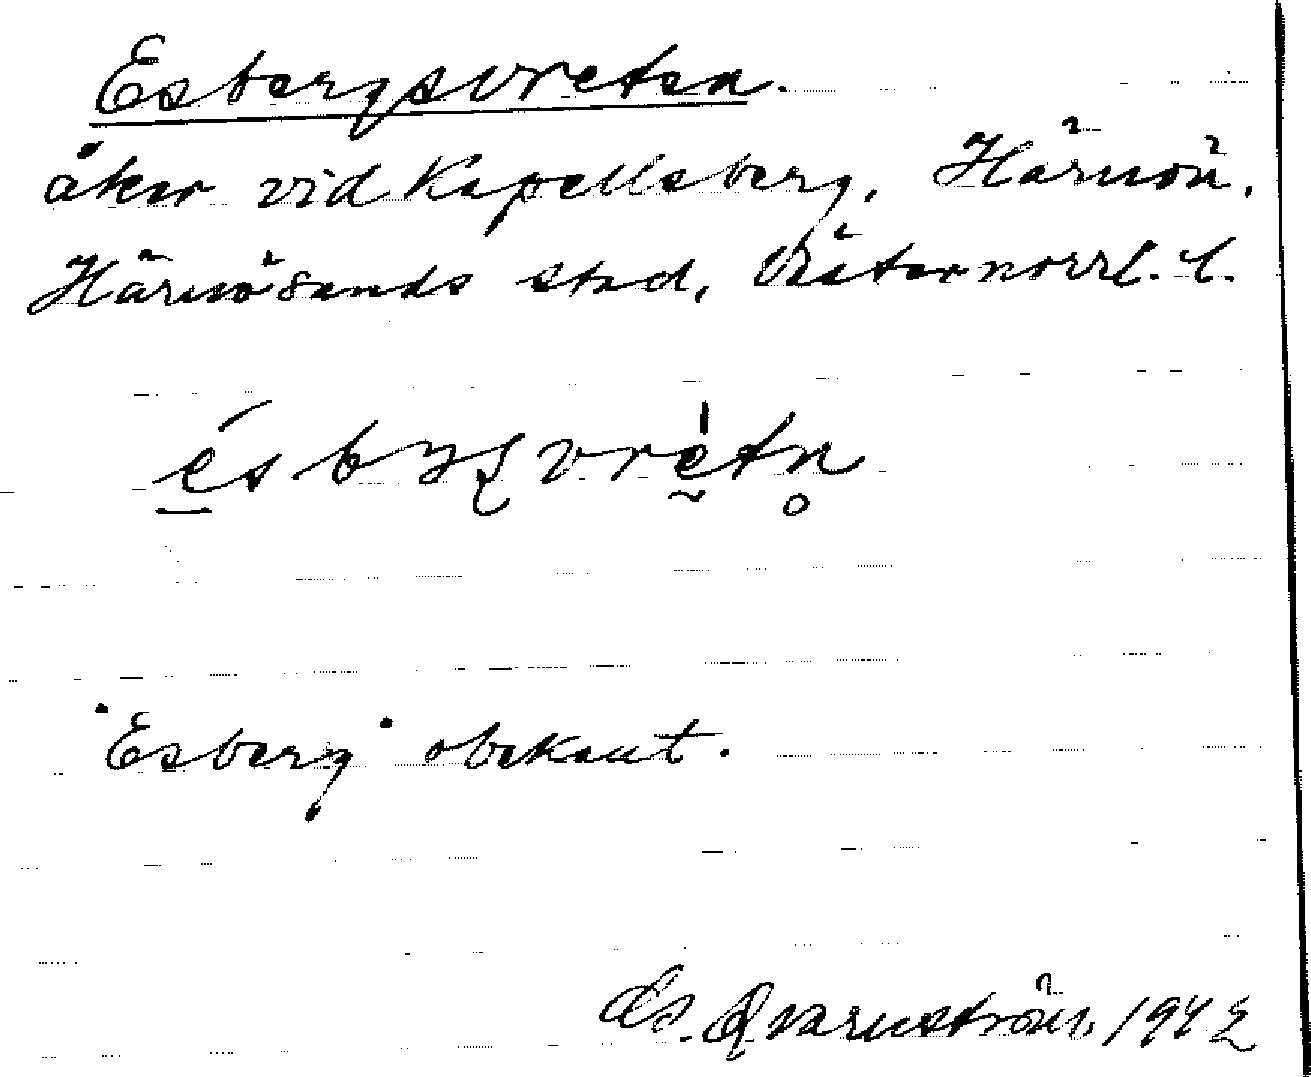 Esbergsvreten.
åker vid Kapellsberg, Härnön,
Härnösands stad, Västernorrl. l.
"Esberg" obekant.
Qvarnström, 1942